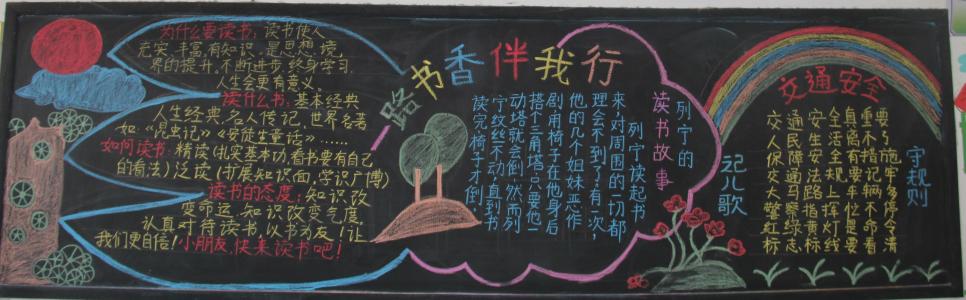 为什么要读书:读书使人
充实,丰富,有知识,是思想,境
界的提升。不断进步,终身学习,
人生会更有意义。
读什么书:基本经典
人生经典,名人传记,世界名著
如《昆虫记》《安徒生童话》……
如何读书:精读(扎实基本功,看书要有自己
的看法)泛读(扩展知识面,学识广博)
读书的态度:知识改
变命运,知识改变气度
认真对待读书,以书为友!让
我们更自信!小朋友,快来读书吧!
一路书香伴我行
列宁的
读书故事
列宁读起书
来,对周围的一切都
理会不到了。有一次,
他的几个姐妹恶作
剧用椅子在他身后
搭个三角塔,只要他一
动塔就会倒。然而列
宁纹丝不动,直到书
读完椅子才倒。
交通安全
守规则
记儿歌
交通安全真重要
人民生活离不了
保障安全有措施
交通法规要记牢
大马路上车辆多
警察指挥位不停
红绿黄灯是命令
标志标线要看清